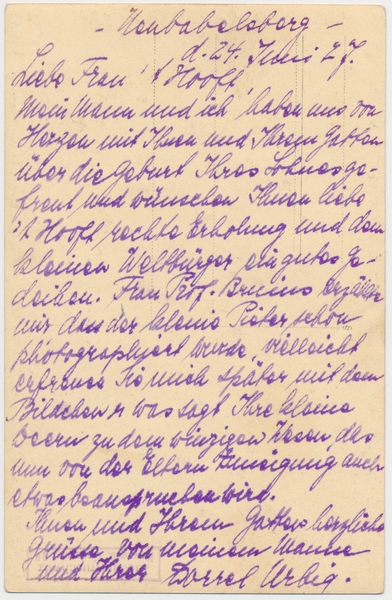 - Neubabelsberg -
d. 24. Juni 27.
Liebe Frau 't Hooff,
Mein Mann und ich haben uns von
Herzen mit Ihnen und Ihrem Gatten
über die Geburt Ihres Sohnes ge-
freut und wünschen Ihnen liebe
't Hooff rechte Erholung und dem
kleinen Weltbürger ein gutes Ge-
deihen. Frau Prof. Bruins erzählte
mir dass der kleine Pieter schon
photographiert wurde, vielleicht
erfreuen Sie mich später mit dem
Bildchen. was sagt Ihre kleine
zu dem winzigen Wesen, das
nun von der Eltern Zuneigung auch
etwas beanspruchen wird.
Ihnen und Ihrem Gatten herzliche
Grüsse von meinem Manne
und Ihrer Dorrel Urbig.